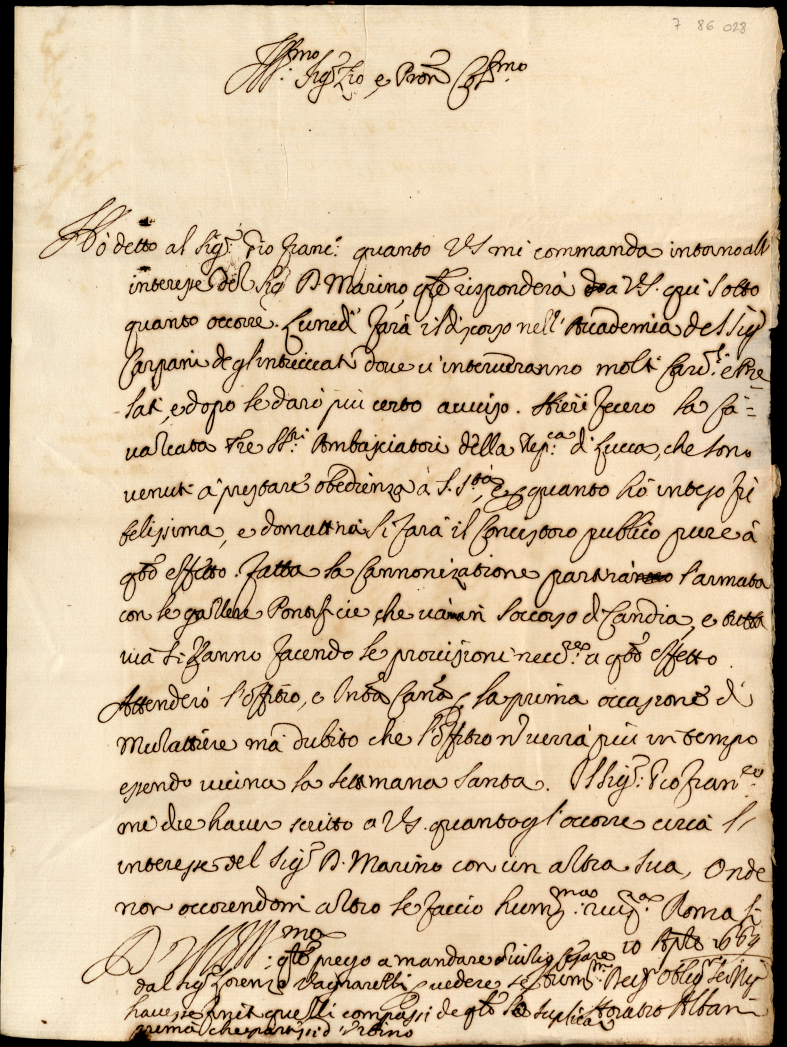 7 86 028
Ill.mo Sig.r Zio e Pron Col.mo
Hò detto al Sig.r Gio Franc.o quanto VS mi commanda intorno all
interesse del Sig.r D. Marino, q.le risponderà a VS. qui sotto
quanto occorre. Lunedì farà il discorso nell'Accademia del Sig.r
Carpani degl'intrecciati dove v'interverranno molti Card.li e Pre
lati, e dopo le darò più certo avviso. Hieri fecero la Ca=
valcata tre SS.ri Ambasciatori della Rep.ca di Lucca, che sono
venuti à prestare obedienza à S. S.tà, e quanto hò inteso fù
belissima, e domattina si farà il Concistoro publico pure à
q.to effetto. Fatta la Cannonizatione partirà l'armata
con le galere Pontificie che và in soccorso di Candia, e tutta
via si vanno facendo le provisioni nec.rie a q.to effetto.
Attenderò l'offitio, e la prima occasione di
Mulattiere mà dubito che l'offitio n verrà più in tempo
essendo vicina la settimana santa. Il Sig.r Gio Fran.co
mi dice haver scritto a VS. quanto gl'occorre circa l'
interesse del Sig.r D. Marino con un altra sua, Onde
non occorendomi altro le faccio hum.ma riv.a Roma li
10 Aple 1669
D VS Ill.ma
prego a mandare
dal Sig.r Lorenzo Vagnarelli vedere se
havesse finit quelli compassi de q.li la suplicai
prima che partissi d'Urbino
Hum.mo Dev.mo Oblig.mo Ser.
Horatio Albani